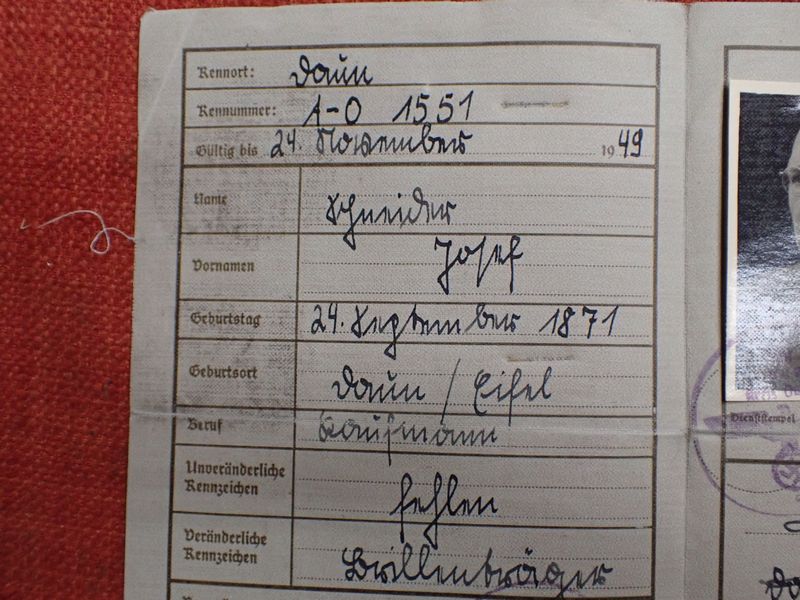 Kennort: Daun
Kennummer: A-0 1551
Gültig bis 24. November 1949
Name Schneider
Vornamen Josef
Geburtstag 24. September 1871
Geburtsort Daun / Eifel
Beruf Kaufmann
Unveränderliche
Kennzeichen fehlen
Veränderliche
Kennzeichen Brillenträger
Dienststempel